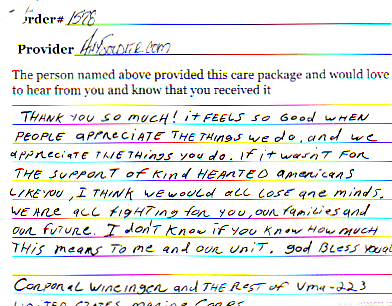 Order# 1578
Provider AnySoldier.com
The person named above provided this care package and would love
to hear from you and know that you received it
THANK YOU SO MUCH! it FEELS SO GOOD WHEN
PEOPLE APPRECIATE THE THINGS WE DO, and WE
APPRECIATE THE THINGS YOU DO. IF IT WASN'T FOR
THE SUPPORT OF KIND HEARTED AMERICANS
LIKE YOU, I THINK WE WOULD ALL LOSE OUR MINDS.
WE ARE ALL FIGHTING FOR YOU, OUR FAMILIES and
OUR FUTURE. I DON'T KNOW IF YOU KNOW HOW MUCH
THIS MEANS TO ME AND OUR UNIT. GOD BLESS YOU
CORPORAL WINEINGER and THE REST OF VMA-223
UNITED STATES MARINE CORPS